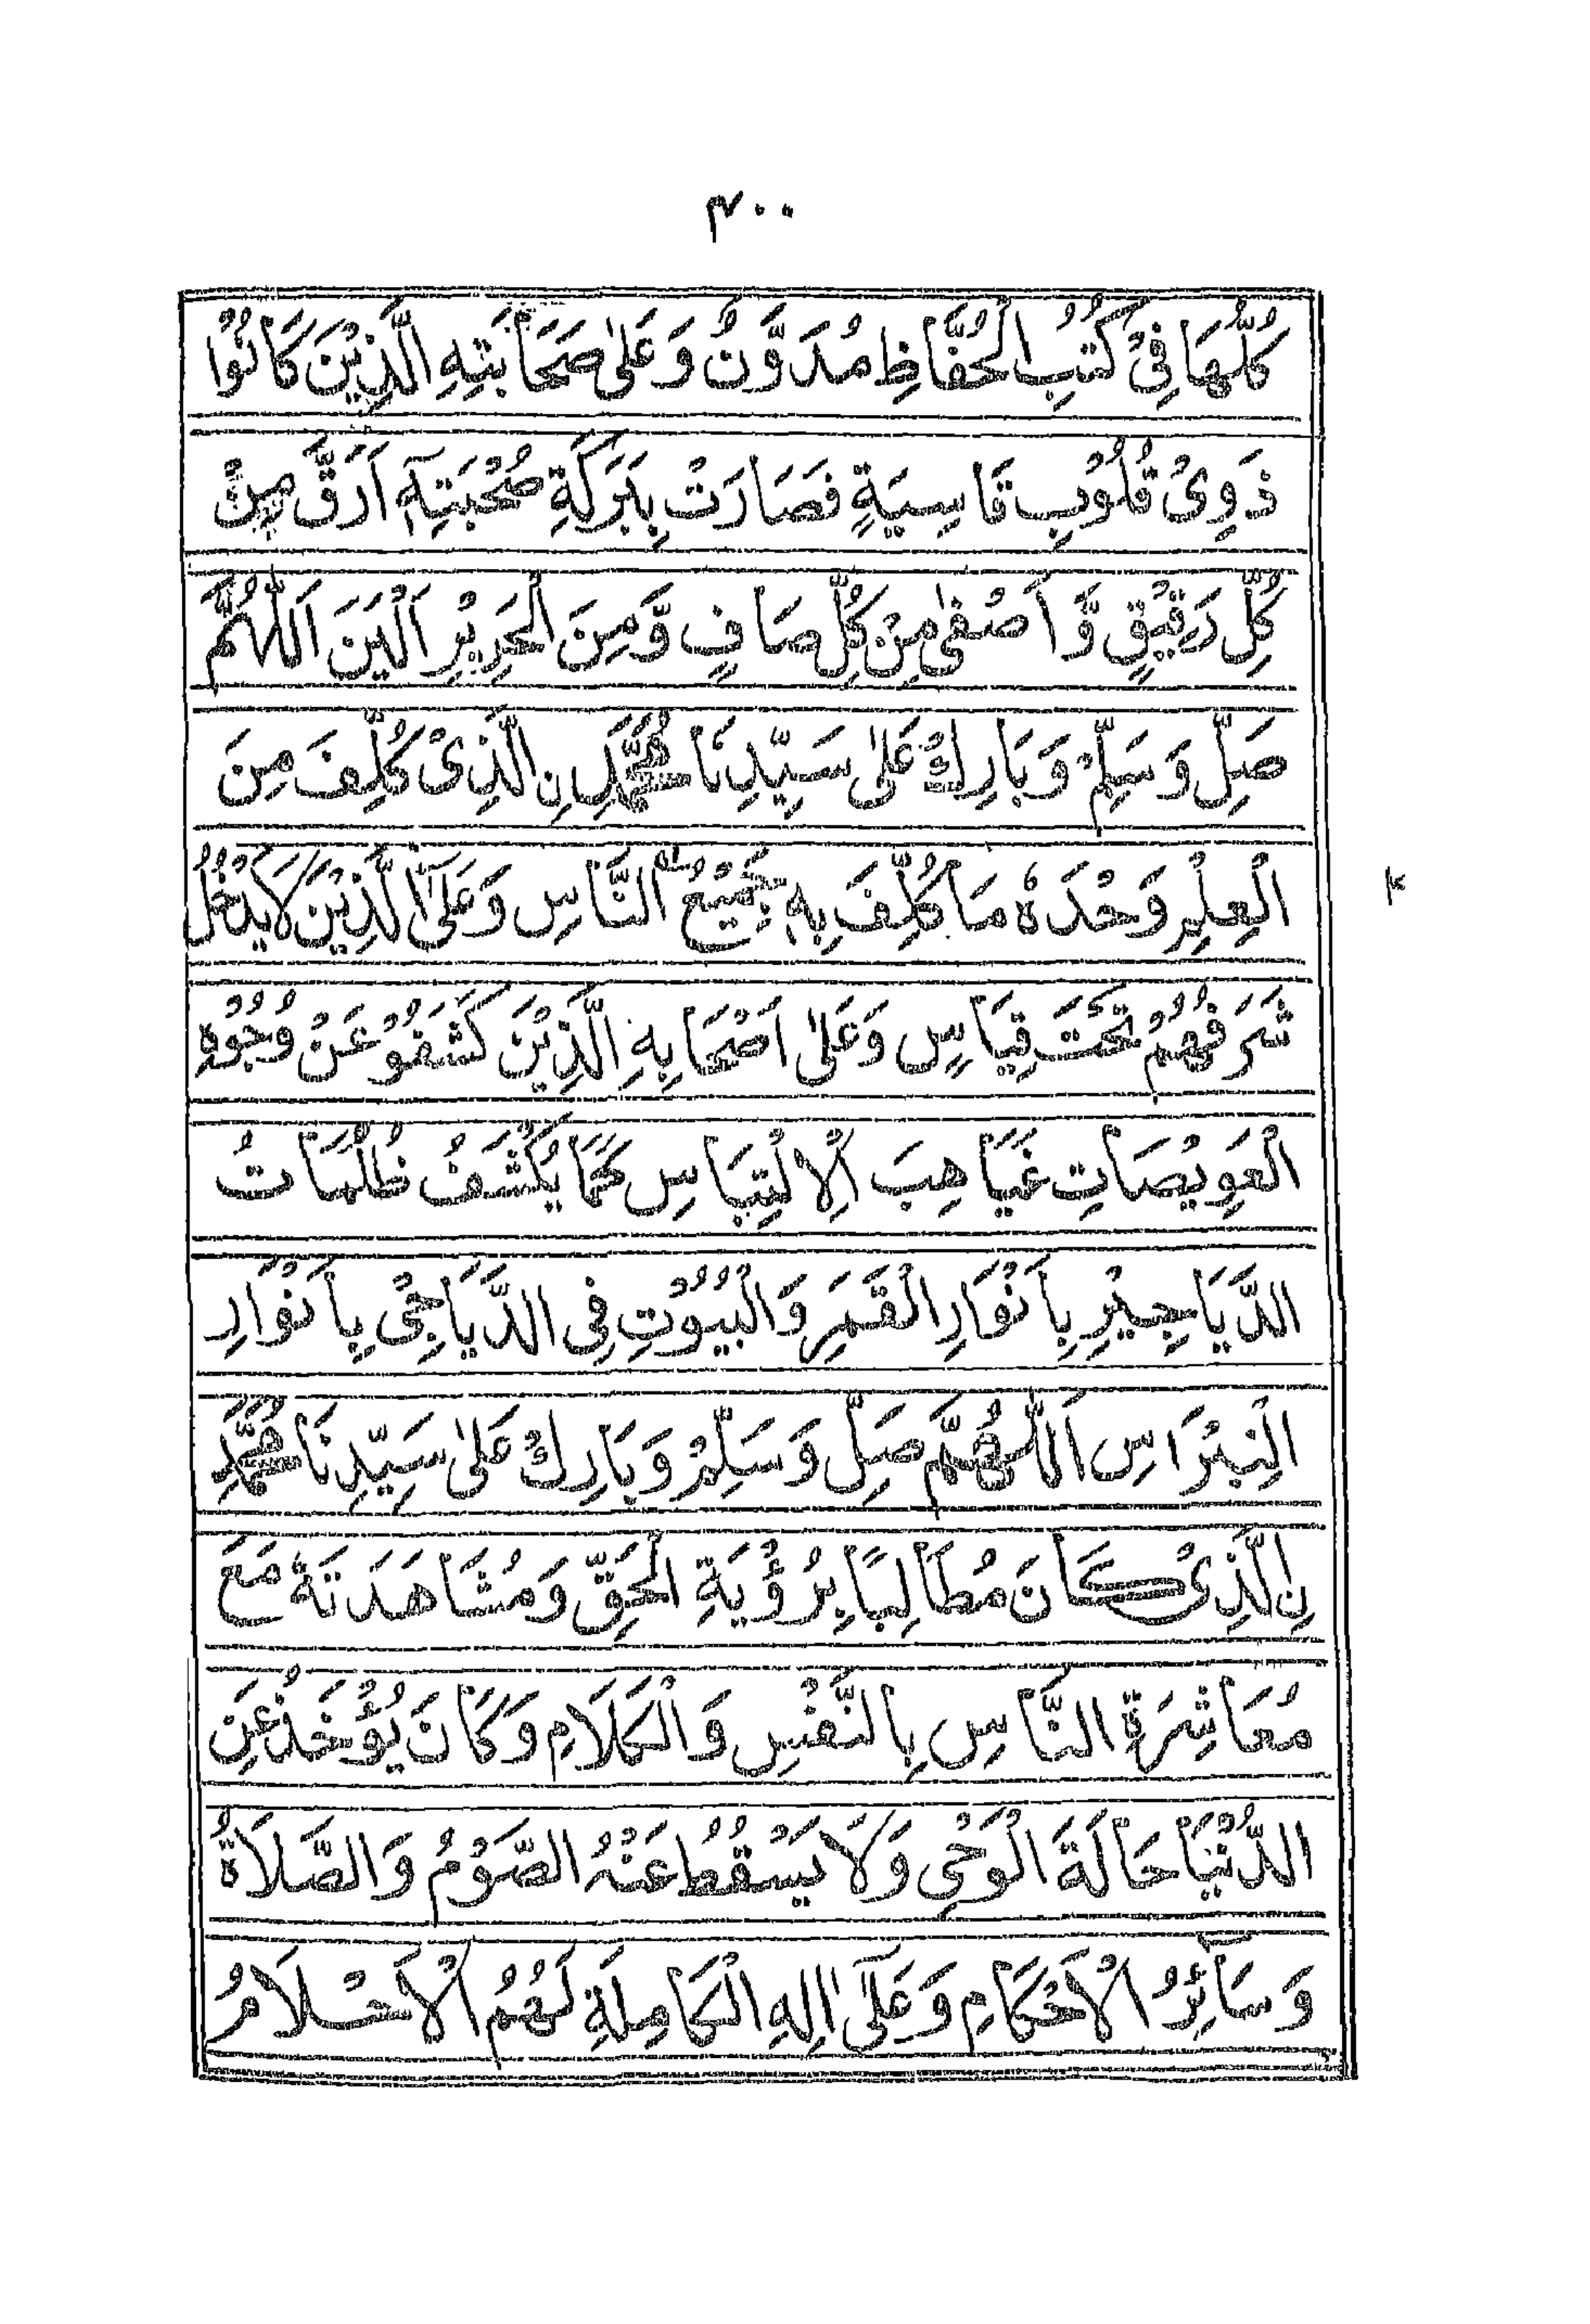 ٣٠٠
كُلُّهَا فِىْ كُتُبِ الْحُفَّاظِ مُدَوَّنٌ وَعَلٰى صَحَابَتِهِ الَّذِيْنَ كَانُوْا
ذَوِىْ قُلُوْبٍ قَاسِيَةٍ فَصَارَتْ بِبَرَكَةِ صُحْبَتِهٖٓ اَرَقَّ مِنْ
كُلِّ رَقِيْقٍ وَّ اَصْفٰى مِنْ كُلِّ صَافٍ وَّمِنَ الْحَرِيْرِ اَلْيَنَ اَللّٰهُمَّ
صَلِّ وَسَلِّمْ وَبَارِكْ عَلٰى سَيِّدِنَا مُحَمَّدِ نِ الَّذِىْ كُلِّفَ مِنَ
الْعِلْمِ وَحْدَهٗ مَا كُلِّفَ بِهٖ جَمِيْعُ النَّاسِ وَعَلٰٓى اٰلِ الَّذِيْنَ لَا يَدْخُلُ
شَرَفُهُمْ تَحْتَ قِيَاسٍ وَعَلٰى اَصْحَابِهِ الَّذِيْنَ كَشَفُوْ عَنْ وُجُوْهِ
الْعَوِيْصَاتِ غَيَاهِبَ الْاِلْتِبَاسِ كَمَا يُكْشَفُ ظُلُمَاتُ
الدَّيَاجِيْرِ بِاَنْوَارِ الْقَمَرِ وَالْبُيُوْتِ فِى الدَّيَاجِىْ بِاَنْوَارِ
النِّبْرَاسِ اَللّٰهُمَّ صَلِّ وَسَلِّمْ وَبَارِكْ عَلٰى سَيِّدِنَا مُحَمَّدِ
نِ الَّذِىْ كَانَ مُطَالِبًا بِرُؤْيَةِ الْحَقِّ وَمُشَاهَدَتَهٗ مَعَ
مُعَاشِرَةِ النَّاسِ بِالنَّفْسِ وَالْكَلَامِ وَكَانَ يُؤْخَذُ عَنِ
الدُّنْيَا حَالَةَ الْوَحْىِ وَلَا يَسْقُطُ عَنْهُ الصَّوْمُ وَالصَّلَاةُ
وَسَائِرُ الْاَحْكَامِ وَعَلٰٓى اٰلِهِ الْكَامِلَةِ لَهُمُ الْاَحْلَامُ